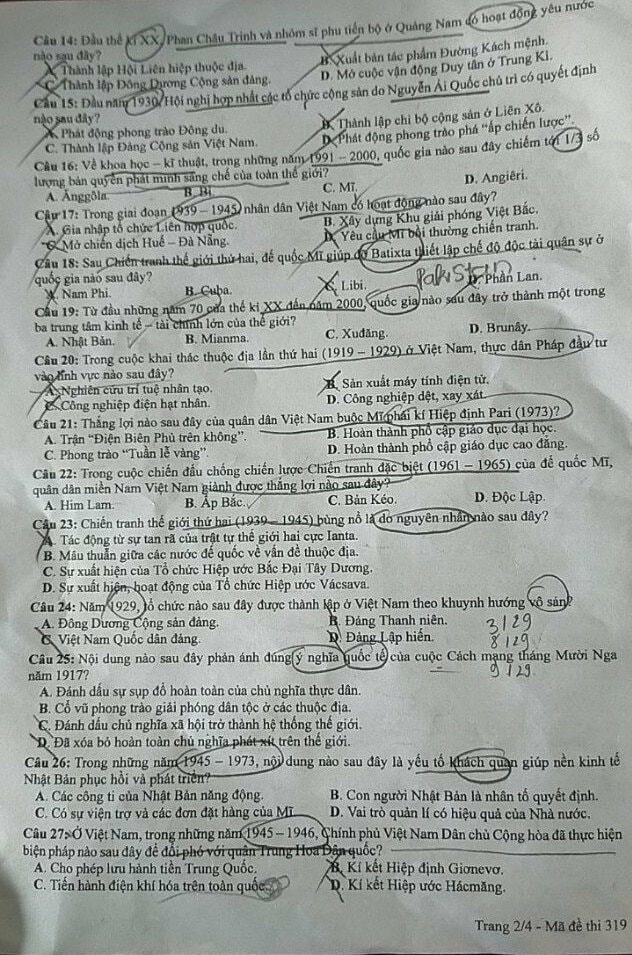 Câu 14: Đầu thế kỉ XX, Phan Châu Trinh và nhóm sĩ phu tiến bộ ở Quảng Nam có hoạt động yêu nước
nào sau đây?
A. Thành lập Hội Liên hiệp thuộc địa.
B. Xuất bản tác phẩm Đường Kách mệnh.
C. Thành lập Đông Dương Cộng sản đảng.
D. Mở cuộc vận động Duy tân ở Trung Kì.
Câu 15: Đầu năm 1930, Hội nghị hợp nhất các tổ chức cộng sản do Nguyễn Ái Quốc chủ trì có quyết định
nào sau đây?
A. Phát động phong trào Đông du.
B. Thành lập chi bộ cộng sản ở Liên Xô.
C. Thành lập Đảng Cộng sản Việt Nam.
D. Phát động phong trào phá “ấp chiến lược”.
Câu 16: Về khoa học – kĩ thuật, trong những năm 1991 – 2000, quốc gia nào sau đây chiếm tới 1/3 số
lượng bản quyền phát minh sáng chế của toàn thế giới?
A. Ănggôla.
B. Bỉ.
C. Mĩ.
D. Angiêri.
Câu 17: Trong giai đoạn 1939 – 1945, nhân dân Việt Nam có hoạt động nào sau đây?
A. Gia nhập tổ chức Liên hợp quốc.
B. Xây dựng Khu giải phóng Việt Bắc.
C. Mở chiến dịch Huế – Đà Nẵng.
D. Yêu cầu Mĩ bồi thường chiến tranh.
Câu 18: Sau Chiến tranh thế giới thứ hai, đế quốc Mĩ giúp đỡ Batixta thiết lập chế độ độc tài quân sự ở
quốc gia nào sau đây?
A. Nam Phi.
B. Cuba.
C. Libi.
Pakistan
D. Phần Lan.
Câu 19: Từ đầu những năm 70 của thế kỉ XX đến năm 2000, quốc gia nào sau đây trở thành một trong
ba trung tâm kinh tế – tài chính lớn của thế giới?
A. Nhật Bản.
B. Mianma.
C. Xuđăng.
D. Brunây.
Câu 20: Trong cuộc khai thác thuộc địa lần thứ hai (1919 – 1929) ở Việt Nam, thực dân Pháp đầu tư
vào lĩnh vực nào sau đây?
A. Nghiên cứu trí tuệ nhân tạo.
B. Sản xuất máy tính điện tử.
C. Công nghiệp điện hạt nhân.
D. Công nghiệp dệt, xay xát.
Câu 21: Thắng lợi nào sau đây của quân dân Việt Nam buộc Mĩ phải kí Hiệp định Pari (1973)?
A. Trận “Điện Biên Phủ trên không”.
B. Hoàn thành phổ cập giáo dục đại học.
C. Phong trào “Tuần lễ vàng”.
D. Hoàn thành phổ cập giáo dục cao đẳng.
Câu 22: Trong cuộc chiến đấu chống chiến lược Chiến tranh đặc biệt (1961 – 1965) của đế quốc Mĩ,
quân dân miền Nam Việt Nam giành được thắng lợi nào sau đây?
A. Him Lam.
B. Ấp Bắc.
C. Bản Kéo.
D. Độc Lập.
Câu 23: Chiến tranh thế giới thứ hai (1939 – 1945) bùng nổ là do nguyên nhân nào sau đây?
A. Tác động từ sự tan rã của trật tự thế giới hai cực Ianta.
B. Mâu thuẫn giữa các nước đế quốc về vấn đề thuộc địa.
C. Sự xuất hiện của Tổ chức Hiệp ước Bắc Đại Tây Dương.
D. Sự xuất hiện, hoạt động của Tổ chức Hiệp ước Vácsava.
Câu 24: Năm 1929, tổ chức nào sau đây được thành lập ở Việt Nam theo khuynh hướng vô sản?
A. Đông Dương Cộng sản đảng.
B. Đảng Thanh niên.
3129
C. Việt Nam Quốc dân đảng.
D. Đảng Lập hiến.
8129
Câu 25: Nội dung nào sau đây phản ánh đúng ý nghĩa quốc tế của cuộc Cách mạng tháng Mười Nga
9129
năm 1917?
A. Đánh dấu sự sụp đổ hoàn toàn của chủ nghĩa thực dân.
B. Cổ vũ phong trào giải phóng dân tộc ở các thuộc địa.
C. Đánh dấu chủ nghĩa xã hội trở thành hệ thống thế giới.
D. Đã xóa bỏ hoàn toàn chủ nghĩa phát xít trên thế giới.
Câu 26: Trong những năm 1945 - 1973, nội dung nào sau đây là yếu tố khách quan giúp nền kinh tế
Nhật Bản phục hồi và phát triển?
A. Các công ti của Nhật Bản năng động.
B. Con người Nhật Bản là nhân tố quyết định.
C. Có sự viện trợ và các đơn đặt hàng của Mĩ.
D. Vai trò quản lí có hiệu quả của Nhà nước.
Câu 27: Ở Việt Nam, trong những năm 1945 – 1946, Chính phủ Việt Nam Dân chủ Cộng hòa đã thực hiện
biện pháp nào sau đây để đối phó với quân Trung Hoa Dân quốc?
A. Cho phép lưu hành tiền Trung Quốc.
B. Kí kết Hiệp định Giơnevơ.
C. Tiến hành điện khí hóa trên toàn quốc.
D. Kí kết Hiệp ước Hácmăng.
Trang 2/4 - Mã đề thi 319